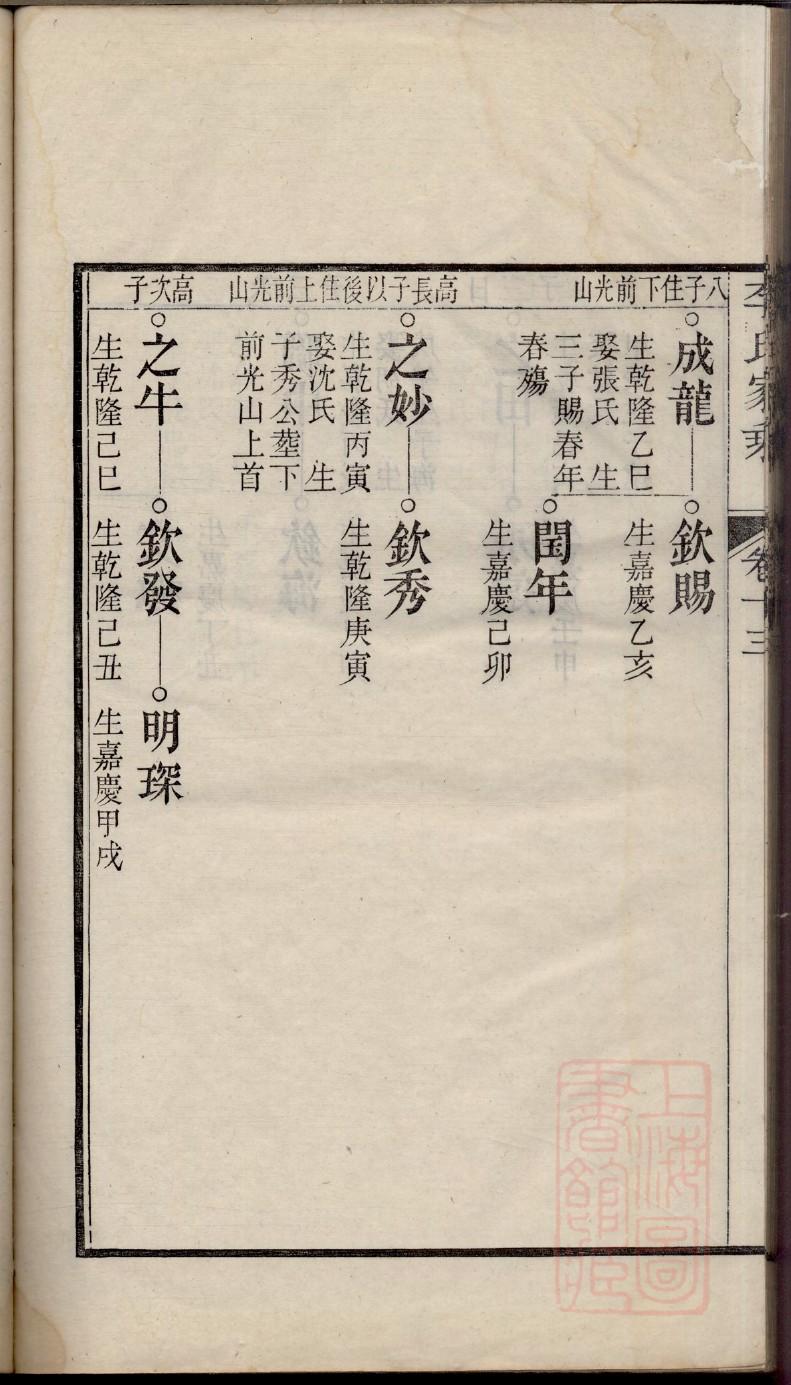 李氏家乘
卷十三
八子住下前光山
成龍
生乾隆乙巳
娶張氏 生
三子賜春年
春殤
欽賜
生嘉慶乙亥
閏年
生嘉慶己卯
高長子以後住上前光山
之妙
生乾隆丙寅
娶沈氏 生
子秀公塟下
前光山上首
欽秀
生乾隆庚寅
高次子
之牛
生乾隆己巳
欽發
生乾隆己丑
明琛
生嘉慶甲戌
上海圖
書館藏